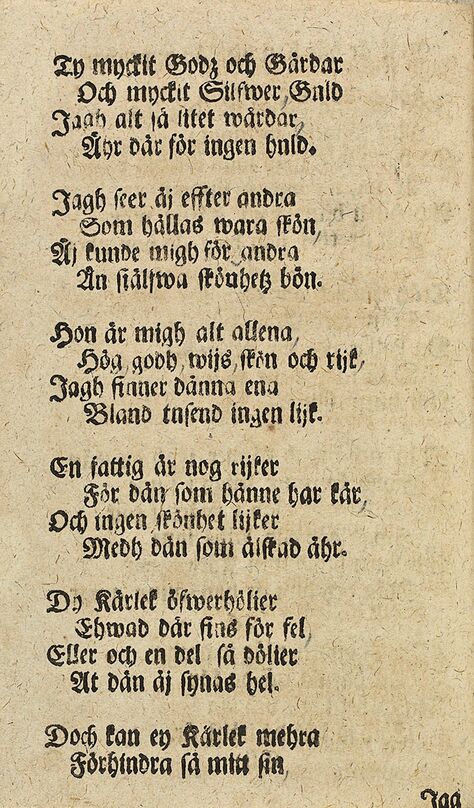 Ty myckit Godz och Gårdar
Och myckit Silfwer, Guld
Jagh alt så litet wårdar,
Ähr där för ingen huld.
Jagh seer äj effter andra
Som hållas wara skön,
Äj kunde migh för andra
Än siälfwa skönhetz bön.
Hon är migh alt allena,
Hög, godh, wijs, skön och rijk,
Jagh finner dänna ena
Bland tusend ingen lijk.
En fattig är nog rijker
För dän som hänne har kär,
Och ingen skönhet lijker
Medh dän som älskad ähr.
Dy Kärlek öfwerhölier
Ehwad där fins för fel,
Eller och en del så dölier
At dän äj synas hel.
Doch kan ey Kärlek mehra
Förhindra så mitt sin,
Jag